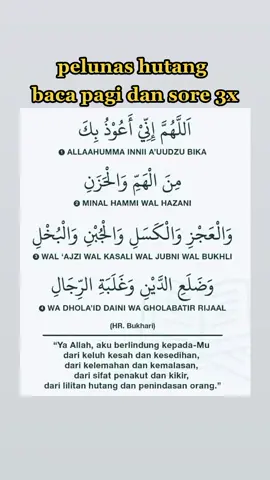 pelunas hutang
baca pagi dan sore 3x
اَللَّهُمَّ إِنِّيْ أَعُوْذُ بِكَ
❶ ALLAAHUMMA INNII A'UUDZU BIKA
مِنَ الْهَمِّ وَالْحَزَنِ
❷ MINAL HAMMI WAL HAZANI
وَالْعَجْزِ وَالْكَسَلِ وَالْجُبْنِ وَالْبُخْلِ
❸ WAL 'AJZI WAL KASALI WAL JUBNI WAL BUKHLI
وَضَلَعِ الدَّيْنِ وَغَلَبَةِ الرِّجَالِ
❹ WA DHOLA'ID DAINI WA GHOLABATIR RIJAAL
(HR. Bukhari)
“Ya Allah, aku berlindung kepada-Mu
dari keluh kesah dan kesedihan,
dari kelemahan dan kemalasan,
dari sifat penakut dan kikir,
dari lilitan hutang dan penindasan orang.”